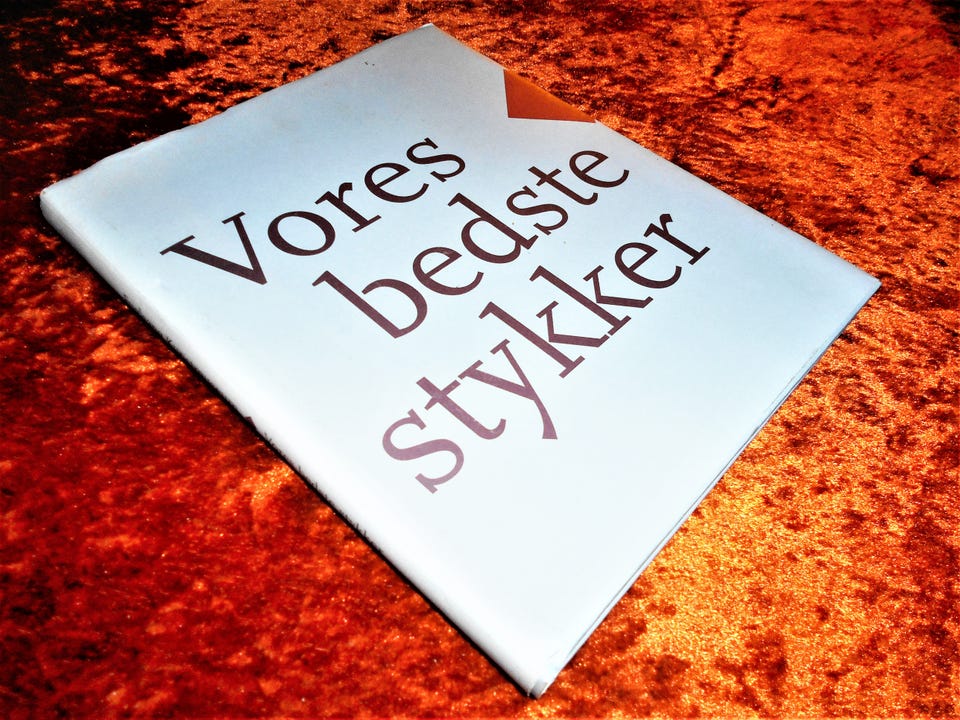 Vores
bedste
stykker